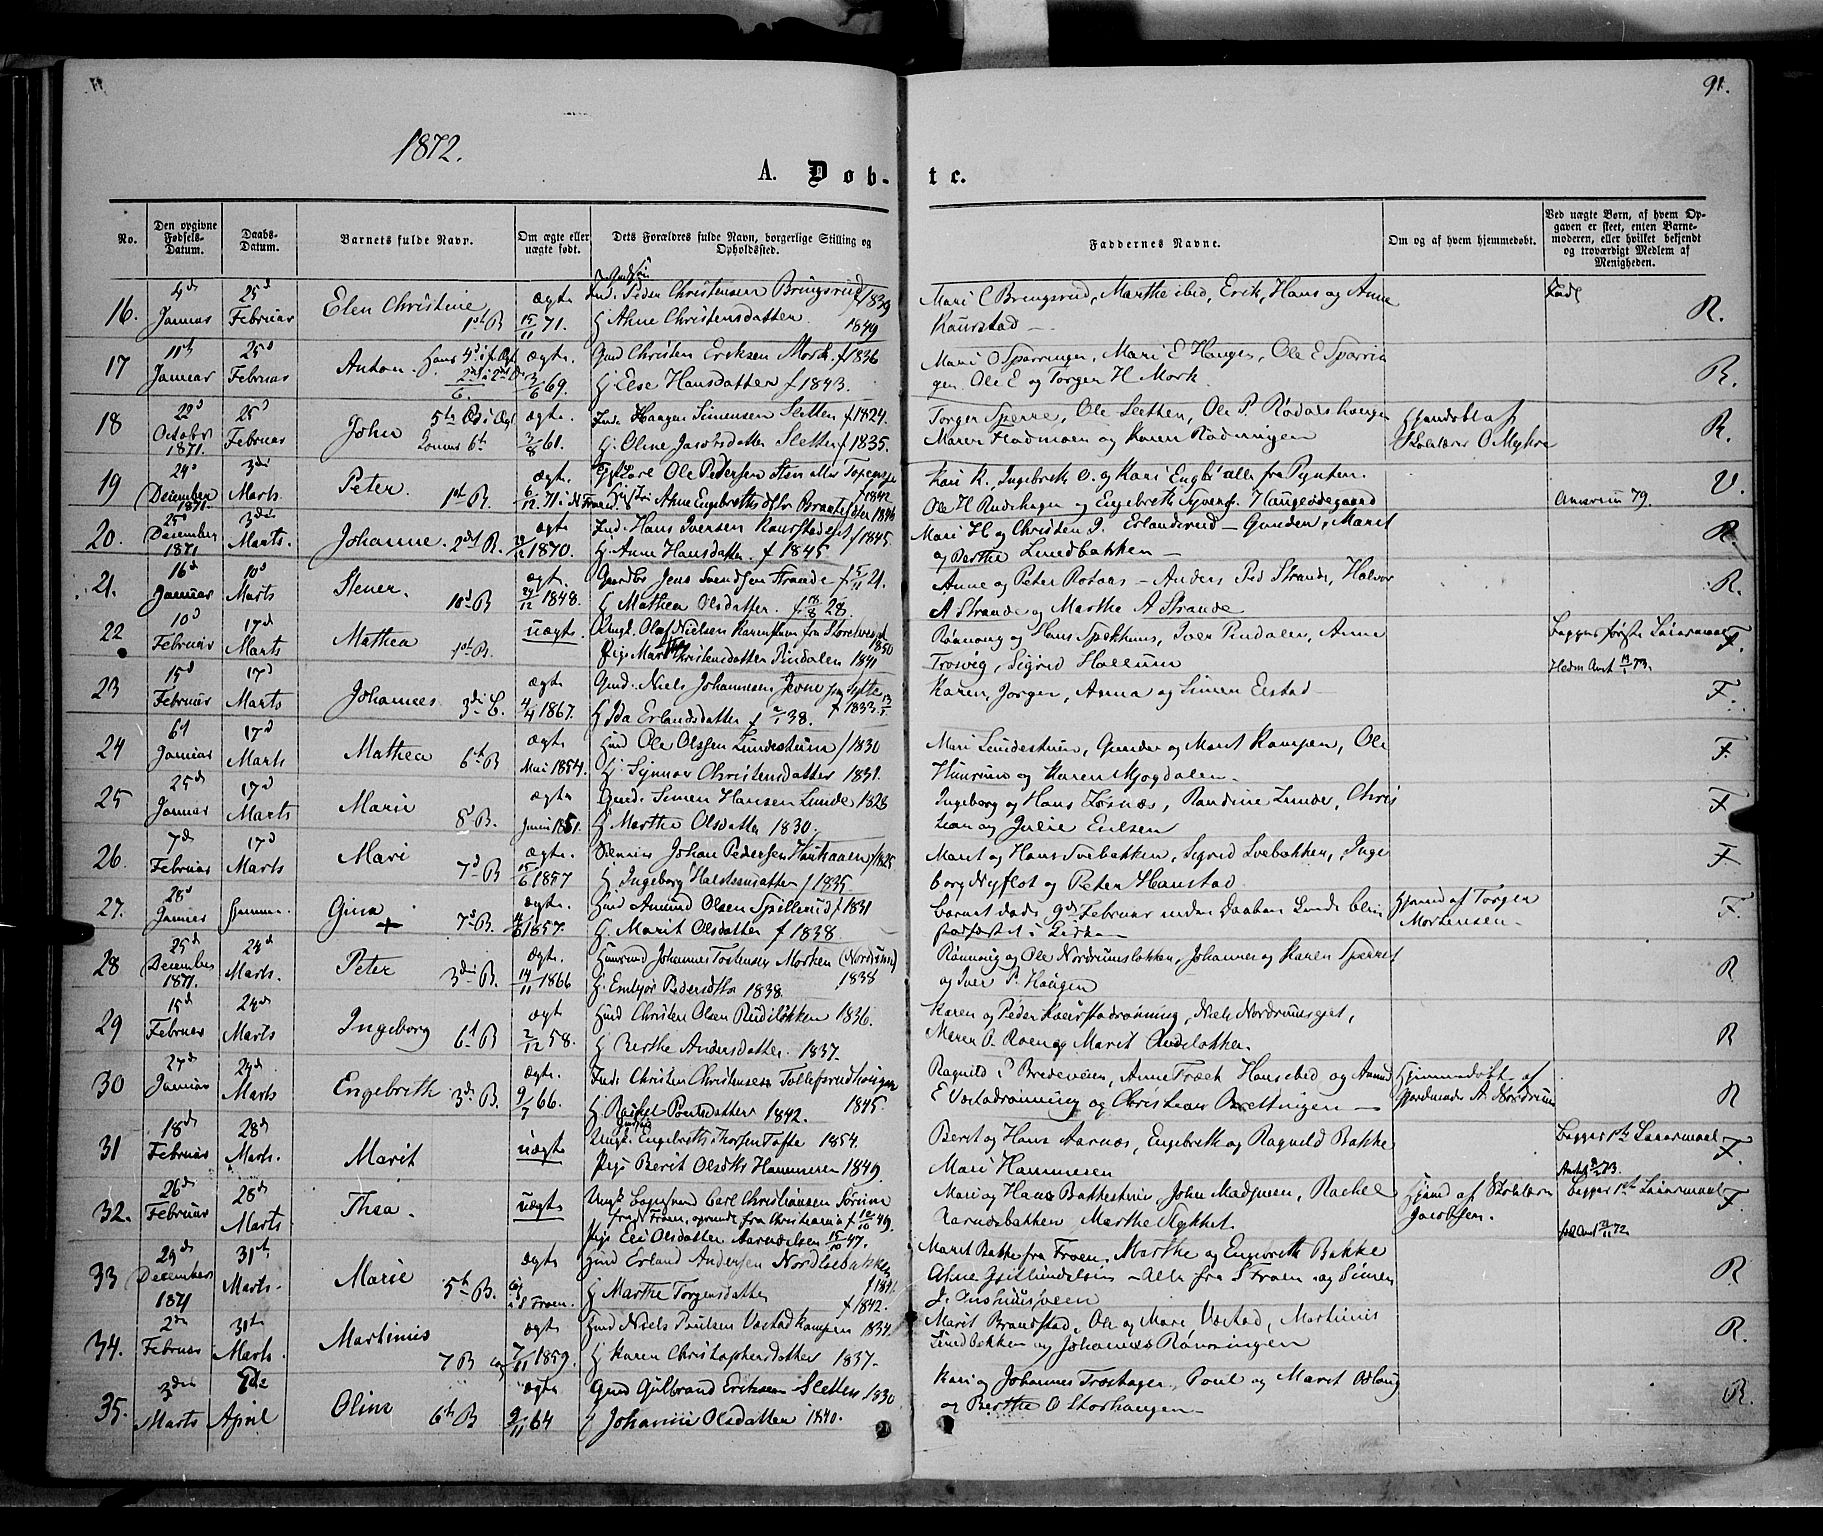 91.
1872.
A. Døb- te.
No.
Den opgivne Fødsels-Datum.
Daabs-Datum.
Barnets fulde Navn.
Om ægte eller uægte født.
Dets Forældres fulde Navn, borgerlige Stilling og Opholdssted.
Faddernes Navne.
Om og af hvem hjemmedøbt.
Ved uægte Børn, af hvem Opgaven er skeet, enten Barnemoderen, eller hvilket bekjendt og troværdigt Medlem af Menigheden.
16. 4de Januar 25d Februar Elen Christine 1ste B ægte 15/11 71. Ind. Peder Christensen Bringsrud 1839
H Anne Christensdatter 1849
Mari C Bringsrud, Marthe ibid, Erik, Hans og Anne
Kaurstad
R.
17 11te Januar 25d Februar Anton ægte 3/6 69. Gmd Christen Eriksen Mork f 1836
H. Else Hansdatter f 1843.
Mari O Sparringen, Mari E Haugen, Ole E Sparrin
gen. Ole E og Torger H Mork.
R.
18 22d October 1871. 25d Februar John 5te B i ægt ægte. 3/8 61. Ind. Haagen Simensen Sletten f 1824.
H. Oline Jacobsdatter Sletten f 1835.
Torger Sperre, Ole Sletten, Ole P. Rødalshaugen
Maren Stadmoen og Karen Rødningen
Skolelærer O Myhre
R.
19 24d December 1871. 3die Marts. Peter. 1ste B. ægte 6/12 71 Ole Pedersen Steen 1842
Anne Engebrethsdtr Braatelien 1846
Kari K., Ingebreth O. og Kari Engbr alle fra Pynten.
Ole H Rudshagen og Engebreth Haugeodegaard
V.
20. 25d December 1871 3die Marts. Johanne. 2det B. ægte 1870. Ind. Hans Iversen Kaurstadeiet f 1845.
H. Anne Hansdatter. f 1845
Mari H og Christen J. Erlandsrud – Gunder, Marit
og Berthe Lundbakken
R.
21. 16d Januar 10d Marts Stener. 10d B ægte. 29/12 1848. Gaardbr Jens Svendsen Strande f 5/11 21.
H. Mathea Olsdatter. f 18/8 28.
Anne og Peter Rotaas – Anders Ped Strande, Halvor
A Strande og Marthe A Strande
R.
22 10d Februar 17d Marts Mathea 1ste B. uægte. Ungk. Olaf Nielsen fra Storelvedal 1850
Pige Mari Christensdatter Pindalen 1841
Rønnaug og Hans Spekhuus, Iver Pindalen, Anne
Trosvig, Sigrid Hallum
Begges første Leiermaal
Hedm Amt 14/1 73.
F.
23 15d Februar 17d Marts Johannes 3die B. ægte 4/4 1867. Gmd. Niels Johannesen Jevne f 1833.
H Ida Erlandsdatter f 2/1 38.
Karen, Jørgen, Anna og Simen Eistad
F.
24 6t Januar 17d Marts Mathea 6te B ægte Mai 1854. Hmd Ole Olssen Lundestuen f 1830
H. Synnøv Christensdatter 1831.
Mari Lundestuen, Gunder og Marit Kampen, Ole
Hunrum og Karen Mjogdalen.
F.
25 25d Januar 17d Marts Marie 8d B. ægte Juni 1851. Gmd. Simen Hansen Lunde 1828
H. Marthe Olsdatter 1830.
Ingeborg og Hans Løsnæs, Randine Lunde, Chris
tian og Julie Eielsen
F
26. 7d Februar 17d Marts Mari 7d B ægte. 15/6 1857 Johan Pedersen Haukaaen 1825
H. Ingeborg Halstensdatter f 1835
Marit og Hans Svebakken, Sigrid Svebakken, Inge
borg Nyflot og Peter Hanstad.
F
27. 28d Januar hjemme. Gina + 7d B. ægte. 1857. Hmd Amund Olsen Spillerud f 1831
H. Marit Olsdatter f 1838.
barnet døde 9d Februar inden Daaben kunde blive
stadfæstet i Kirken
Hjemd af Torger
Mortensen
F.
28 25d December 1871. 24d Marts. Peter 3die B. ægte. 14/11 1866 Huusmd Johannes Tostensen Morken (Nordrum) 1838
H. Embjør Pedersdtr 1838.
Rønnaug og Ole Nordrumsløkken, Johannes og Karen Sperre
og Iver P. Haugen
R
29 15d Februar 24d Marts Ingeborg 6t B ægte 2/12 58. Hmd Christen Olsen Rudiløkken 1836.
H Berthe Andersdatter. 1837.
Karen og Peder Kaurstadrønning, Niels Nordrumseiet,
Maren O. Roen og Marit Rudeløkken.
R
30 27d Januar 24d Marts Engebreth 3die B. ægte. 9/7 66. Ind. Christen Christensen Tollefsrudhaugen 1845.
H. Rachel Poulsdatter 1842.
Ragnild P Bredeveien, Anne Træet Hans ibid og Amund
E Vestadrønning og Christian Brettingen
Hjemmedøbt af
Gjordmoder A Nordrum
R
31 18d Februar 28de Marts. Marit uægte Ungk. Engebreth Thorsen Tofte 1854.
Pige Berit Olsdtr Hammeren 1849
Berit og Hans Aarnæs, Engebreth og Ragnild Bakke
Mari Hammeren
Begges 1ste Leiermaal
F.
32. 26d Februar 28de Marts Thea. uægte Ungk Carl Christiansen
fra Froen, fra Christiania f 10/10 49.
Pige Eli Olsdatter 15/10 47.
Mari og Hans Bakkestuen, John Madsmoen, Rachel
Aarnæsbakken Marthe Stykket.
Hjemd af Skolelærer
Jacobsen.
Begges 1ste Leiermaal
F.
33 29de December 1871 31te Marts. Marie 5te B. ægte Hmd Erland Andersen Nordlisbakken f 1841.
H Marthe Torgersdatter f 1842.
Marit Bakke fra Froen, Marthe og Engebreth Bakke
alle fra S Froen og Simen
R
34. 2den Februar 31te Marts. Martinus 7 B ægte 7/11 1859. Hmd Niels Poulsen Vestadkampen 1834.
H Karen Christophersdatter 1837.
Marit Brandstad, Ole og Mari Vestad, Martinus
Lundbakken og Johannes Rønningen
R.
35. 3die Marts 7de April Oline 6te B ægte 9/11 64 Gmd Gulbrand Eriksen Sletten 1830
H Johanne Olsdatter 1840.
Kari og Johannes Træshagen, Poul og Marit Odlaug
og Berthe O Storhaugen
R.